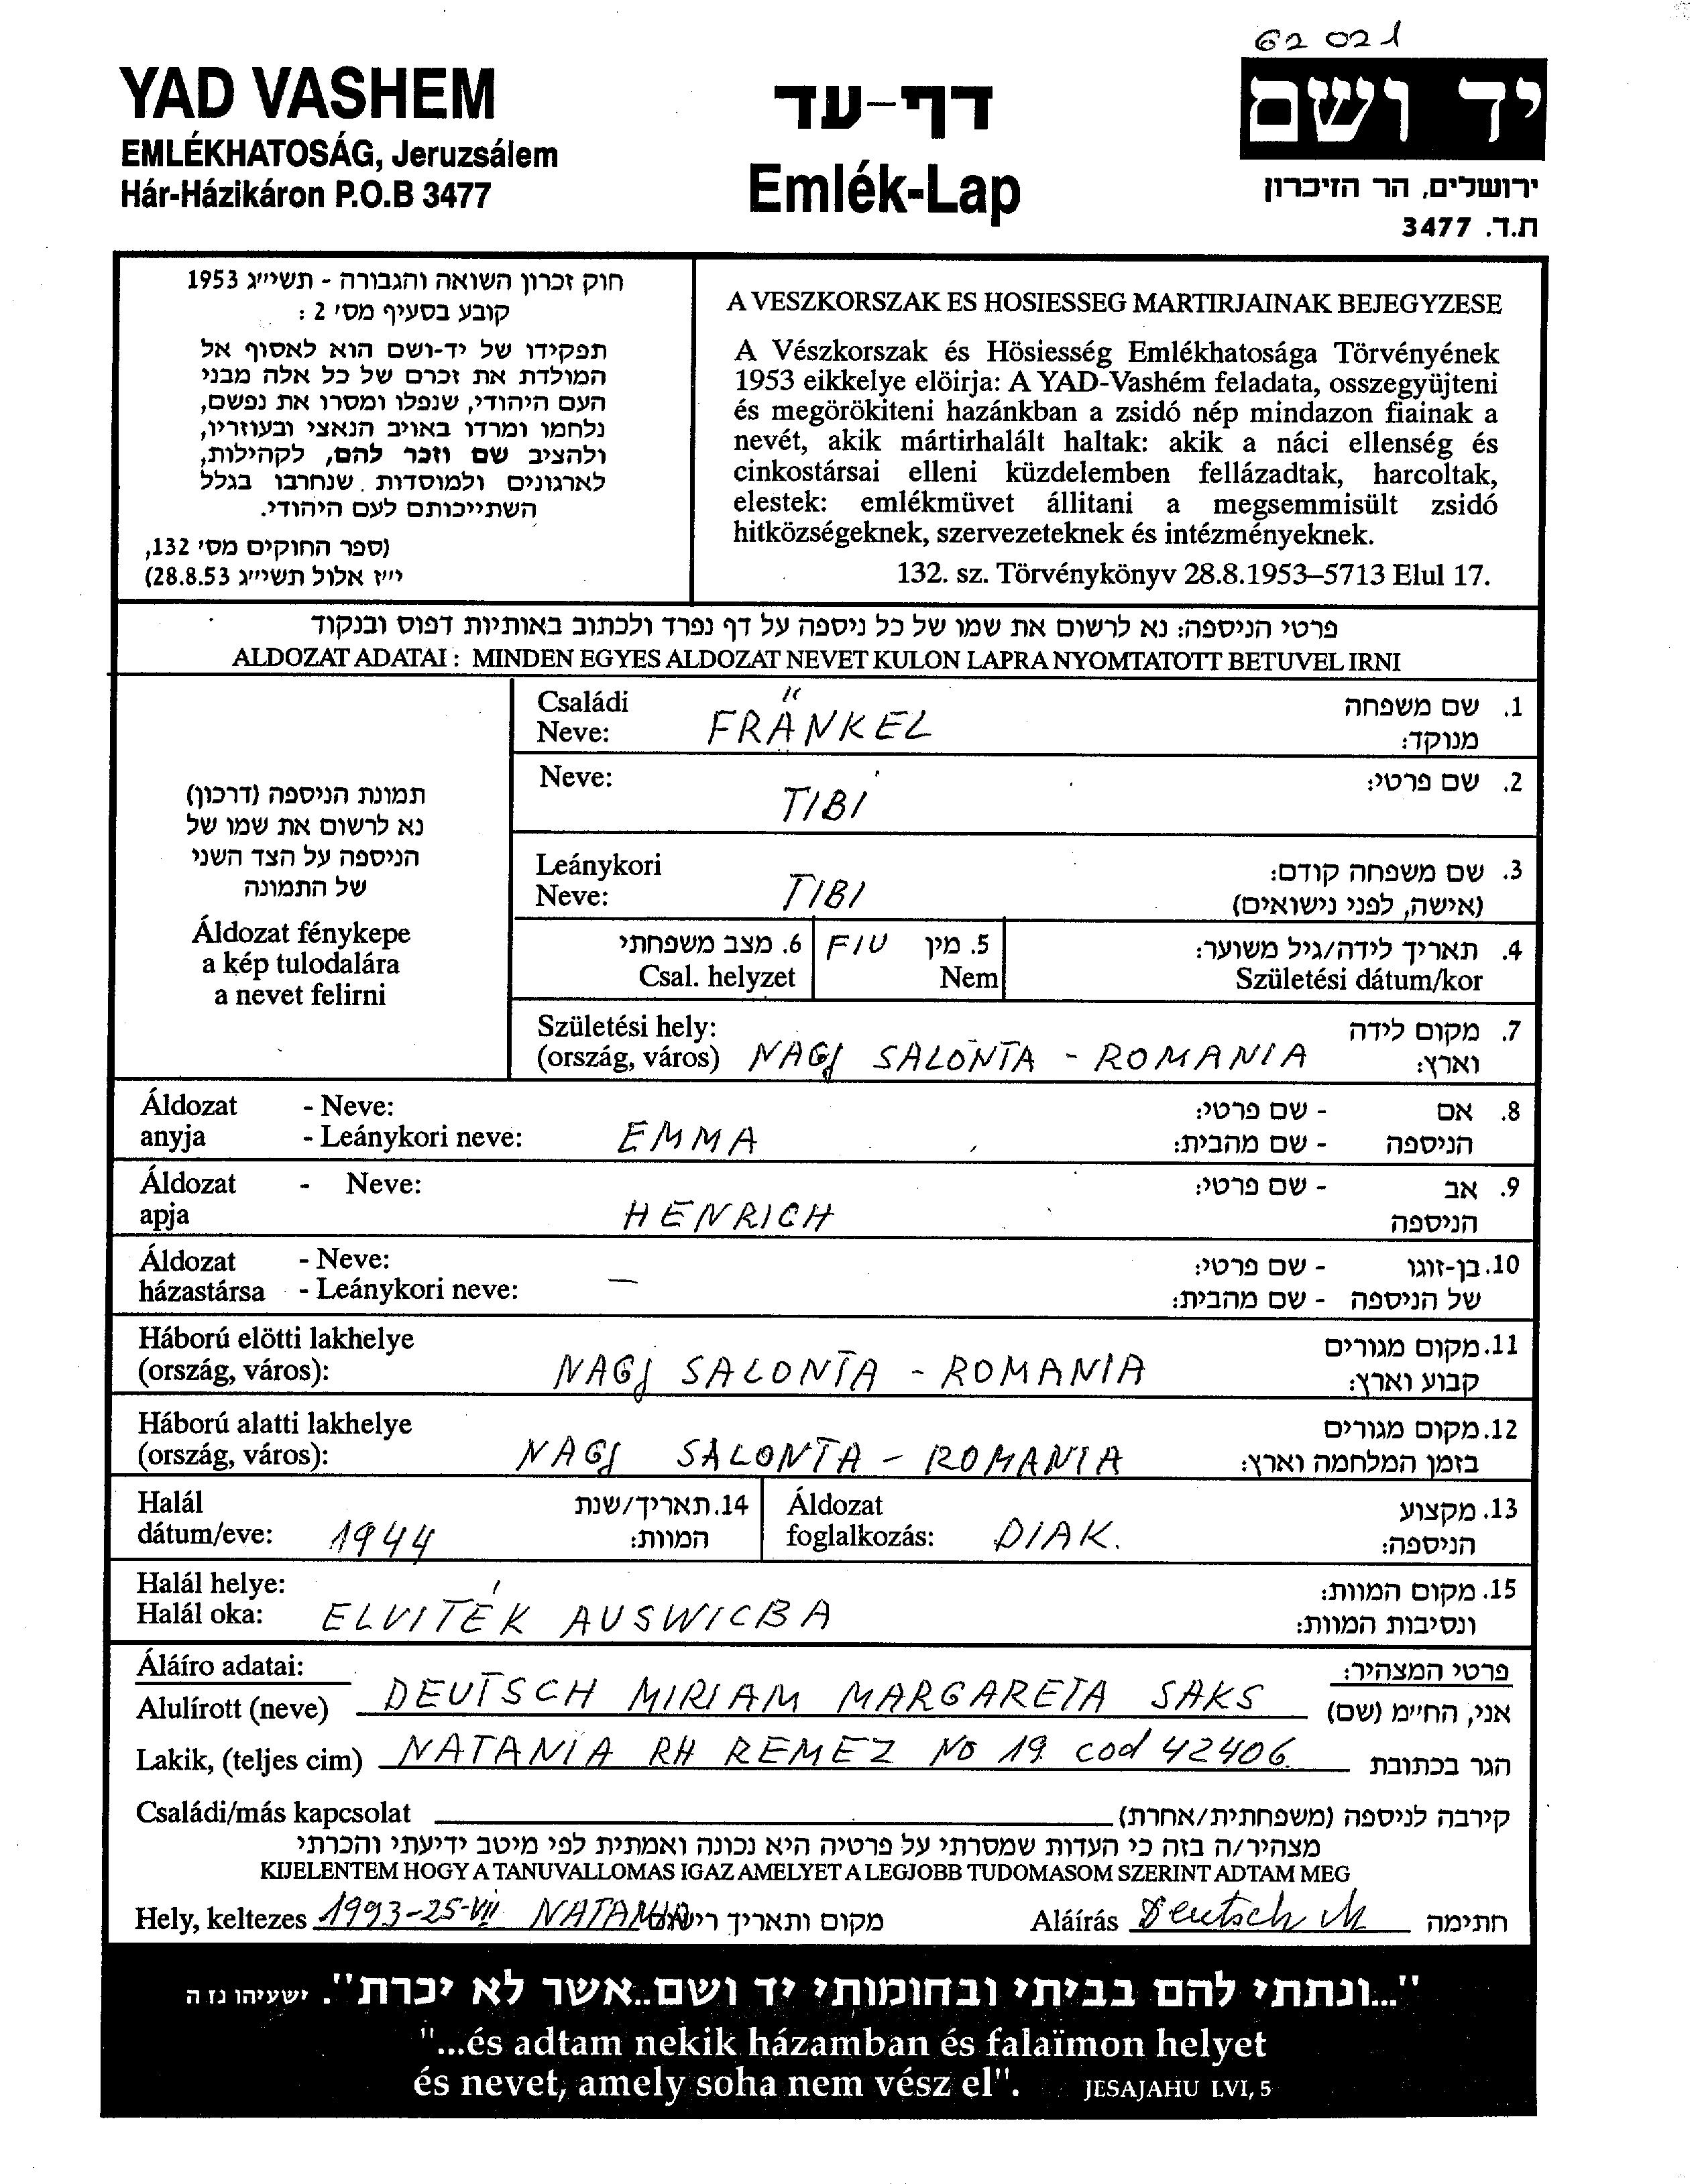 62 021
YAD VASHEM
EMLÉKHATOSÁG, Jeruzsálem
Hár-Házikáron P.O.B 3477
דף-עד
Emlék-Lap
יד ושם
ירושלים, הר הזיכרון
ת.ד. 3477
חוק זכרון השואה והגבורה - תשי״ג 1953
קובע בסעיף מס׳ 2 :
תפקידו של יד-ושם הוא לאסוף אל
המולדת את זכרם של כל אלה מבני
העם היהודי, שנפלו ומסרו את נפשם,
נלחמו ומרדו באויב הנאצי ובעוזריו,
ולהציב שם וזכר להם, לקהילות,
לארגונים ולמוסדות שנחרבו בגלל
השתייכותם לעם היהודי.
(ספר החוקים מס׳ 132,
י״ז אלול תשי״ג 28.8.53)
A VESZKORSZAK ES HOSIESSEG MARTIRJAINAK BEJEGYZESE
A Vészkorszak és Hösiesség Emlékhatosága Törvényének
1953 eikkelye elöirja: A YAD-Vashém feladata, osszegyüjteni
és megörökiteni hazánkban a zsidó nép mindazon fiainak a
nevét, akik mártirhalált haltak: akik a náci ellenség és
cinkostársai elleni küzdelemben fellázadtak, harcoltak,
elestek: emlékmüvet állitani a megsemmisült zsidó
hitközségeknek, szervezeteknek és intézményeknek.
132. sz. Törvénykönyv 28.8.1953–5713 Elul 17.
פרטי הניספה: נא לרשום את שמו של כל ניספה על דף נפרד ולכתוב באותיות דפוס ובנקוד
ALDOZAT ADATAI : MINDEN EGYES ALDOZAT NEVET KULON LAPRA NYOMTATOTT BETUVEL IRNI
תמונת הניספה (דרכון)
נא לרשום את שמו של
הניספה על הצד השני
של התמונה
Áldozat fénykepe
a kép tulodalára
a nevet felirni
Családi
Neve: FRÄNKEL
1. שם משפחה
מנוקד:
Neve: TIBI
2. שם פרטי:
Leánykori
Neve: TIBI
3. שם משפחה קודם:
(אישה, לפני נישואים)
6. מצב משפחתי
Csal. helyzet
FIU 5. מין
Nem
4. תאריך לידה/גיל משוער:
Születési dátum/kor
Születési hely:
(ország, város) NAGJ SALONTA - ROMANIA
7. מקום לידה
וארץ:
Áldozat - Neve:
anyja - Leánykori neve: EMMA
8. אם - שם פרטי:
הניספה - שם מהבית:
Áldozat - Neve:
apja HENRICH
9. אב - שם פרטי:
הניספה
Áldozat - Neve:
házastársa - Leánykori neve: —
10. בן-זוגו - שם פרטי:
של הניספה - שם מהבית:
Háború elötti lakhelye
(ország, város): NAGJ SALONTA - ROMANIA
11. מקום מגורים
קבוע וארץ:
Háború alatti lakhelye
(ország, város): NAGJ SALONTA - ROMANIA
12. מקום מגורים
בזמן המלחמה וארץ:
Halál
dátum/eve: 1944
14. תאריך/שנת
המוות:
Áldozat
foglalkozás: DIAK.
13. מקצוע
הניספה:
Halál helye:
Halál oka: ELVITÉK AUSWICBA
15. מקום המוות:
ונסיבות המוות:
Áláíro adatai:
פרטי המצהיר:
Alulírott (neve) DEUTSCH MIRIAM MARGARETA SAKS אני, החי״מ (שם)
Lakik, (teljes cim) NATANIA RH REMEZ No 19 cod 42406. הגר בכתובת
Családi/más kapcsolat קירבה לניספה (משפחתית/אחרת)
מצהיר/ה בזה כי העדות שמסרתי על פרטיה היא נכונה ואמתית לפי מיטב ידיעתי והכרתי
KIJELENTEM HOGY A TANUVALLOMAS IGAZ AMELYET A LEGJOBB TUDOMASOM SZERINT ADTAM MEG
Hely, keltezes 1993-25-VII NATANIA מקום ותאריך רישום Aláírás Deutsch M חתימה
"...ונתתי להם בביתי ובחומותי יד ושם..אשר לא יכרת". ישעיהו נז ה
"...és adtam nekik házamban és falaïmon helyet
és nevet, amely soha nem vész el". JESAJAHU LVI, 5